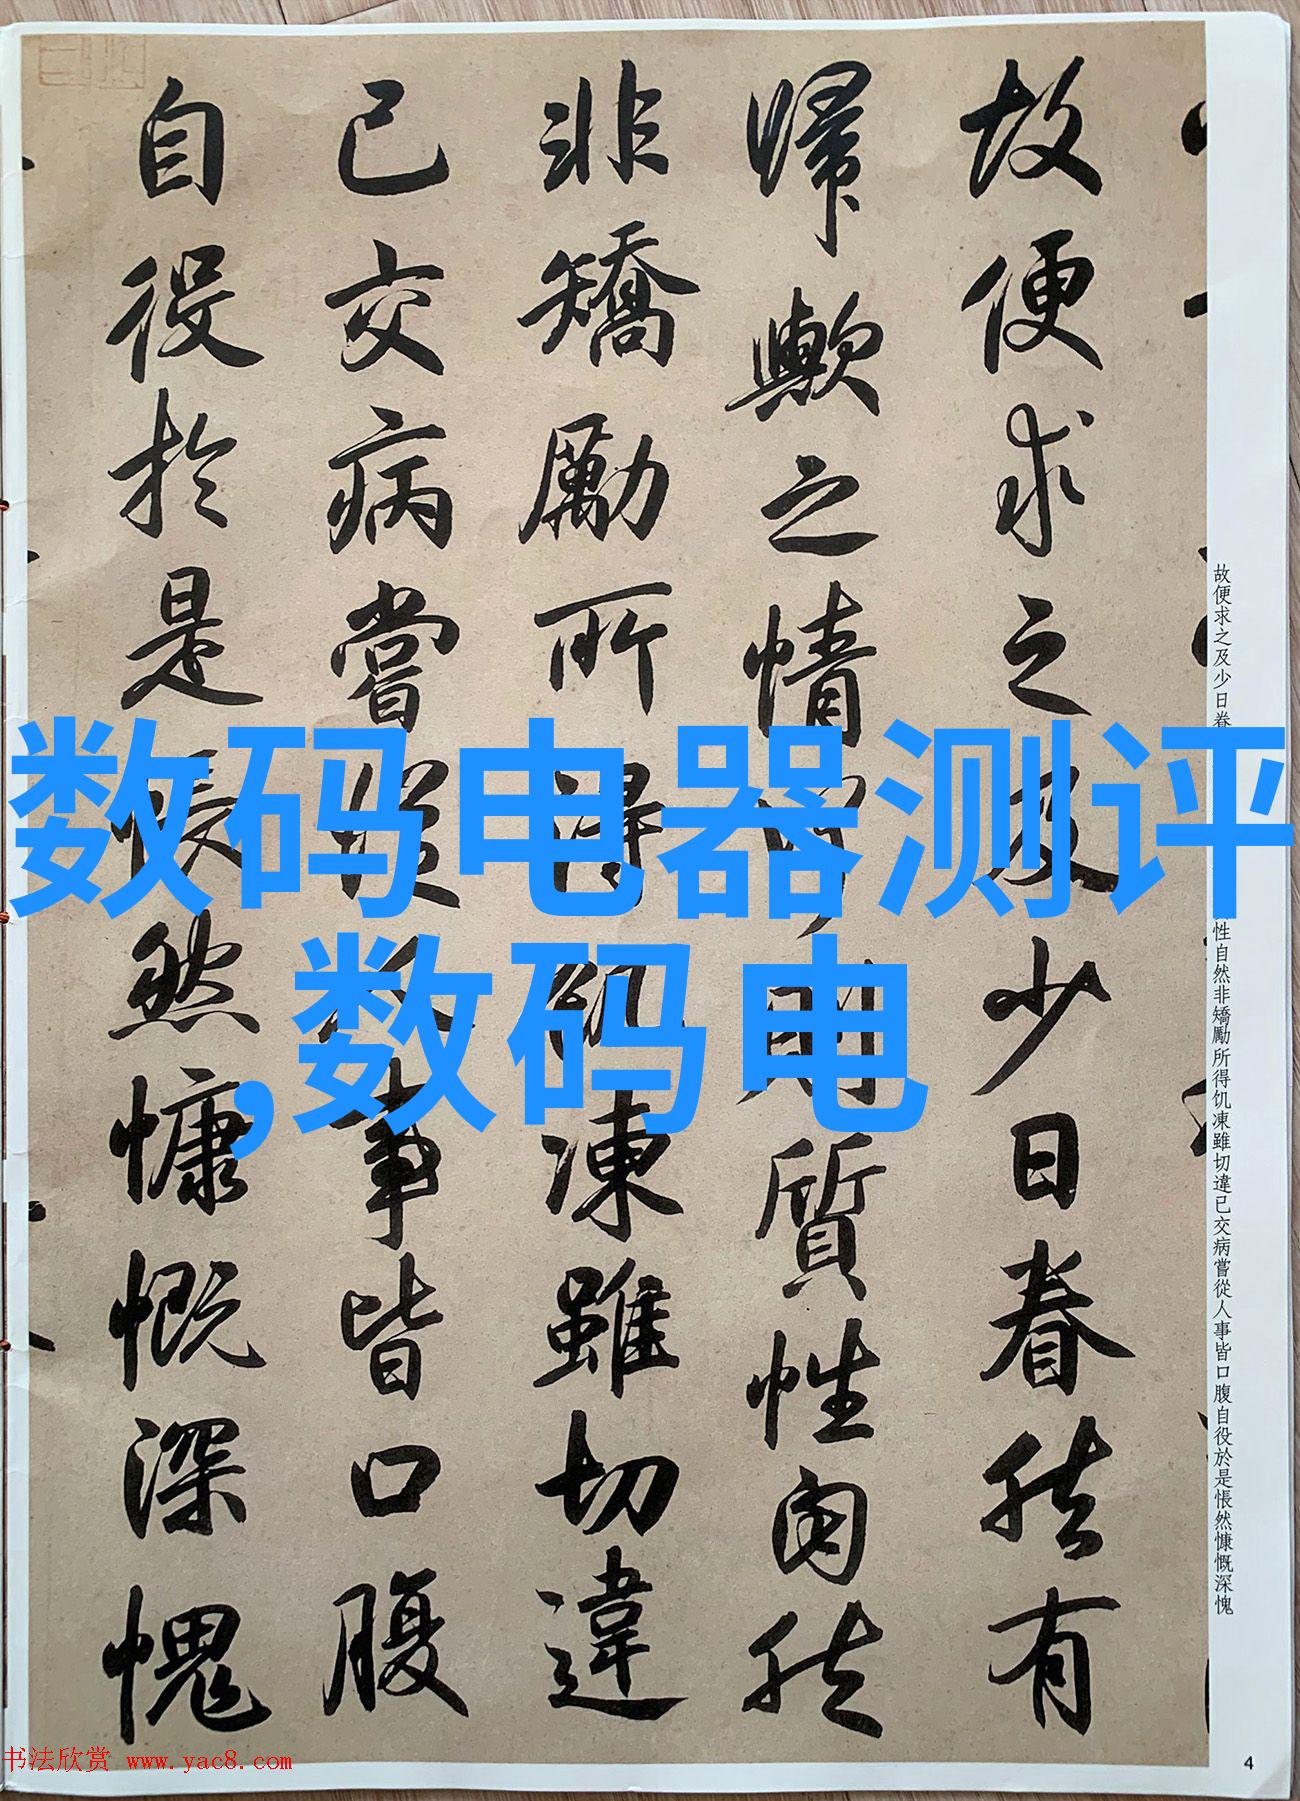 故便求之及少日眷然有
歸歟之情何則質性自然
非矯勵所得飢凍雖切違
已交病嘗從人事皆口腹
自役於是悵然慷慨深愧
数码电器测评
,数码电
故便求之及少日眷
性自然非矯勵所得饥凍雖切違已交病嘗從人事皆口腹自役於是悵然慷慨深愧
书法欣赏 www.yac8.com
4